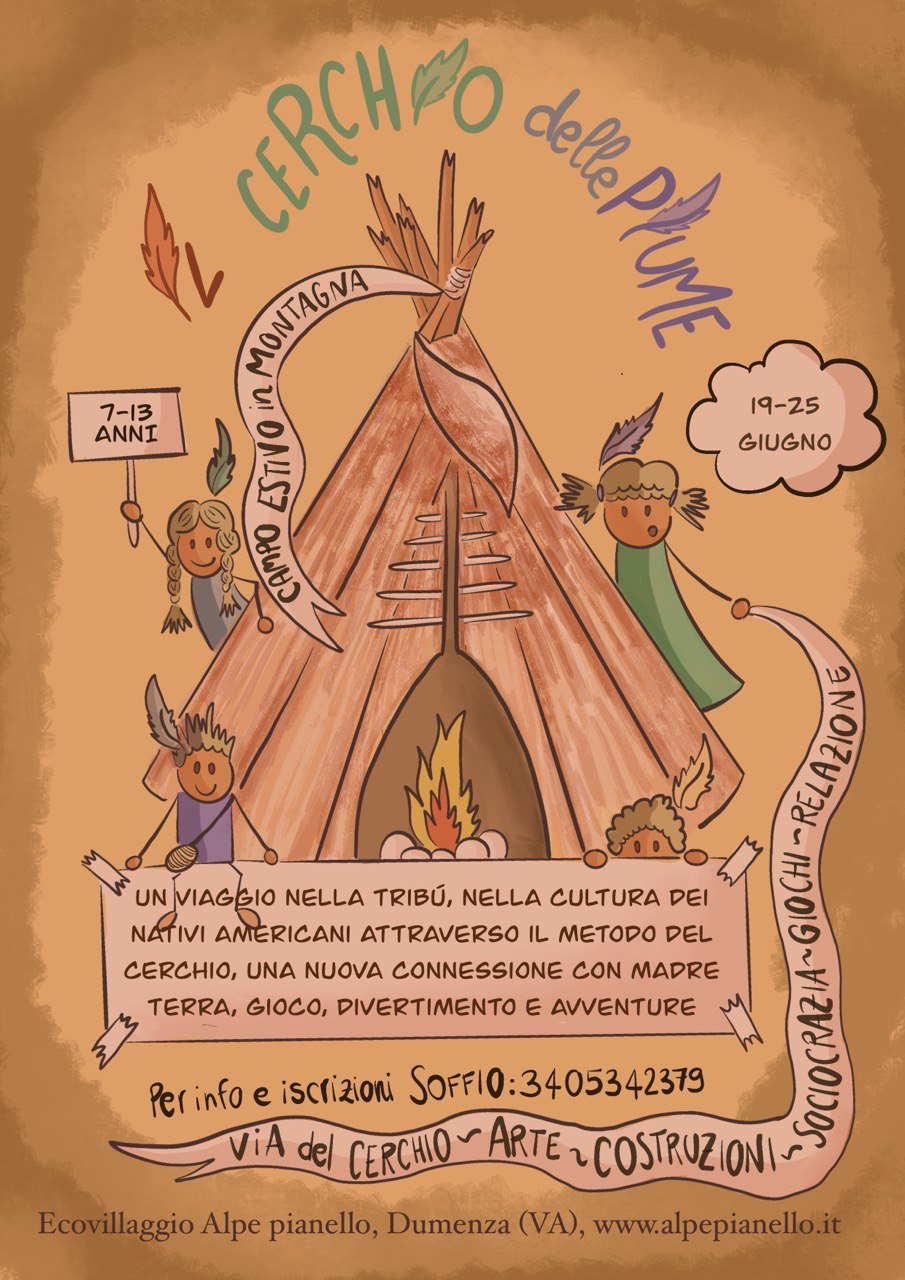 IL CERCHIO delle PIUME
CAMPO ESTIVO in MONTAGNA
7-13
ANNI
19-25
GIUGNO
UN VIAGGIO NELLA TRIBÚ, NELLA CULTURA DEI
NATIVI AMERICANI ATTRAVERSO IL METODO DEL
CERCHIO, UNA NUOVA CONNESSIONE CON MADRE
TERRA, GIOCO, DIVERTIMENTO E AVVENTURE
Per info e iscrizioni SOFFIO: 3405342379
ViA del CERCHIO ~ ARTE ~ COSTRUZIONI ~ SOCIOCRAZIA ~ GIOCHI ~ RELAZIONE
Ecovillaggio Alpe pianello, Dumenza (VA), www.alpepianello.it